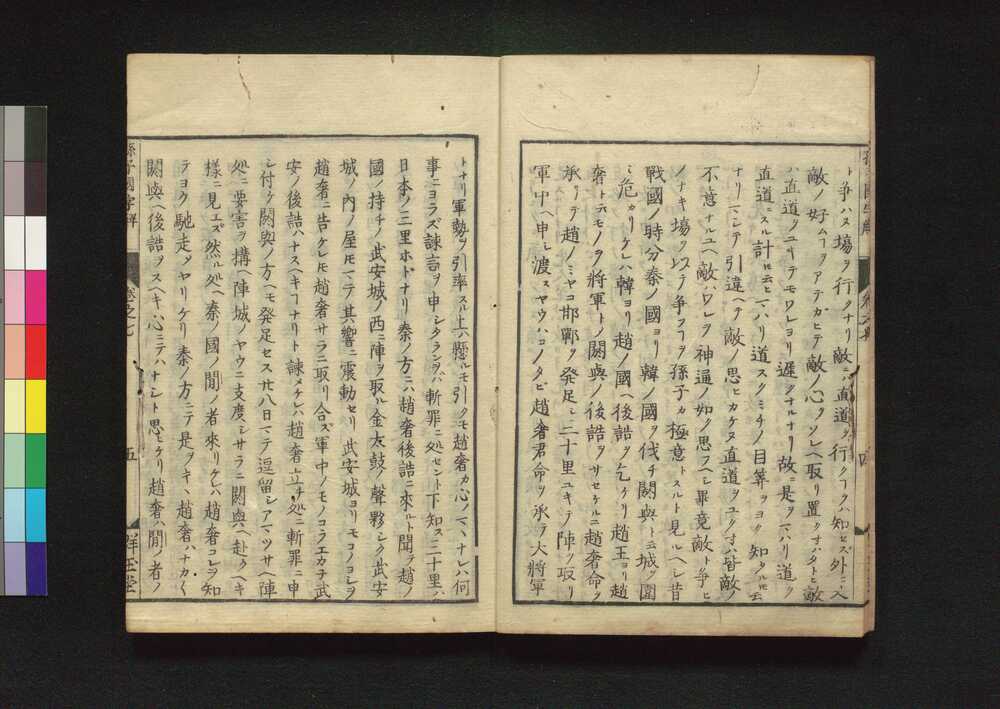 ト爭ハヌ塲ヲ行クナリ敵ニ直道ヲ行クヿハ知セズ外ニ人
敵ノ好ムヿヲアテガヒテ敵ノ心ヲソレヘ取リ置クオハタトヒ敵
ハ直道ヲユキテモワレヨリ遲クナルナリ故ニ是ヲマハリ道ヲ
直道ニスル計ﾄ云ヒマハリ道スクミチノ目算ヲヨク知タルﾄﾓ云
ナリマシテ引違ヘテ敵ノ思ヒカケヌ直道ヲユク寸ハ皆敵ノ
不意ナルユヘ敵ハワレヲ神通ノ如ク思フヘシ畢竟敵ト爭ヒ
ノナキ塲ヲ以テ爭フヿヲ孫子カ極意トスルト見ルヘシ昔
戰國ノ時分秦ノ國ヨリ韓ノ國ヲ伐チ閼與ト云城ヲ圍
ミ危カリケレハ韓ヨリ趙ノ國ヘ後詰ヲ乞ケリ趙王ヨリ趙
奢ト云モノヲ將軍トノ閼與ノ後詰ヲサセケルニ趙奢命ヲ
承リテ趙ノミヤコ邯鄲ヲ発足シ三十里ユキテ陣ヲ取リ
軍中ヘ申シ渡スヤウハコノタビ趙奢君命ヲ承ヲ大將軍
トナリ軍勢ヲ引率スル上ハ懸ルモ引クモ趙奢カ心ノマヽナレハ何
事ニヨラズ諫言ヲ申シタランヲハ斬罪ニ処セント下知ス三十里ハ
日本ノ三里ホドナリ秦ノ方ニハ趙奢後詰ニ來ルト聞テ趙ノ
國ノ持チノ武安城ノ西ニ陣ヲ取ル金太鼓ノ聲夥シク武安
城ノ内ノ屋モマテ其響ニ震動セリ武安城ヨリモコノコレヲ
趙奢ニ告ケレモ趙奢サラニ取リ合ズ軍中ノモノコラエカチ武
安ノ後詰ハナスヘキヿナリト諫メケレハ趙奢立チ処ニ斬罪ニ申
シ付ケ閼與ノ方ヘモ発足セス廿八日マテ逗留シアマツサヘ陣
処ニ要害ヲ搆ヘ陣城ノヤウニ支度シサラニ閼與ヘ赴クヘキ
様ニ見エズ然ル処ヘ秦ノ國ノ間ノ者來リケレハ趙奢コレヲ知
テヨク馳走シヤリケリ秦ノ方ニテ是ヲキヽ趙奢ハナカ〱
閼與ヘ後詰ヲスヘキ心ニテハナシト思ヒケリ趙奢ハ間ノ者ノ
孫子國字解
卷之七
五
群玉堂